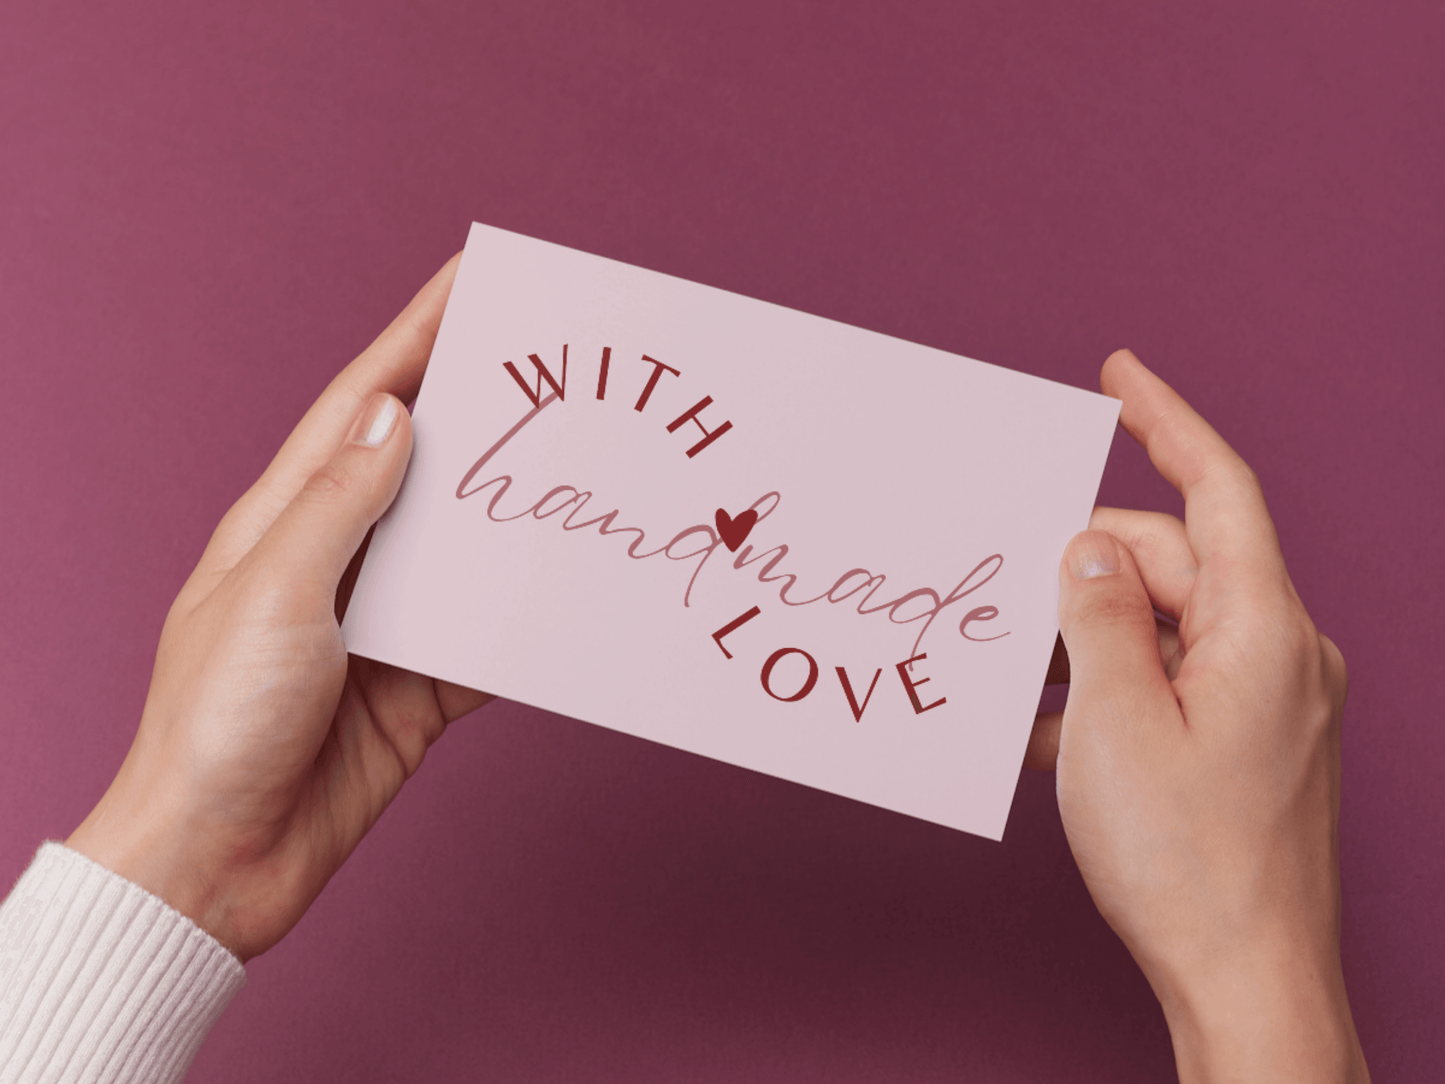 WITH
handmade
LOVE